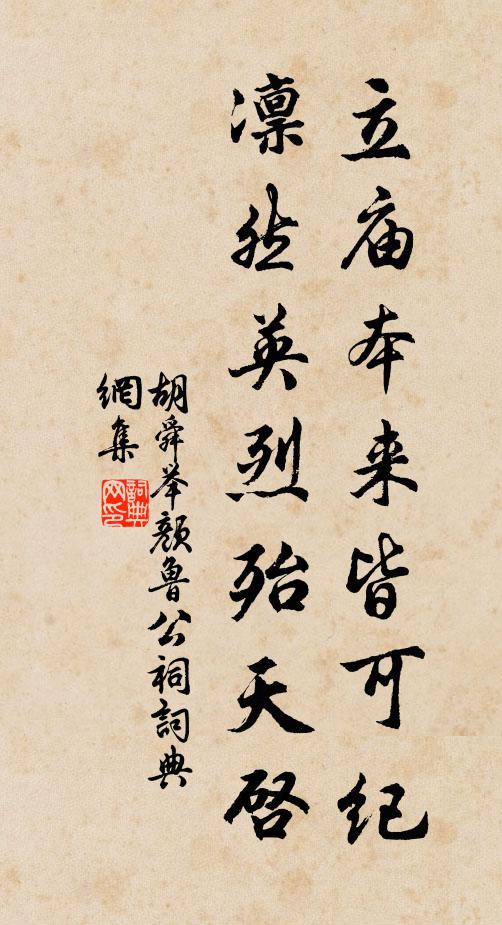 立庙本来皆可纪
凛然英烈殆天启
胡舜举颜鲁公祠詞典
網集
詞典
网印